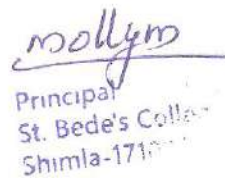 mollym
Principal
St. Bede's Colle
Shimla-171